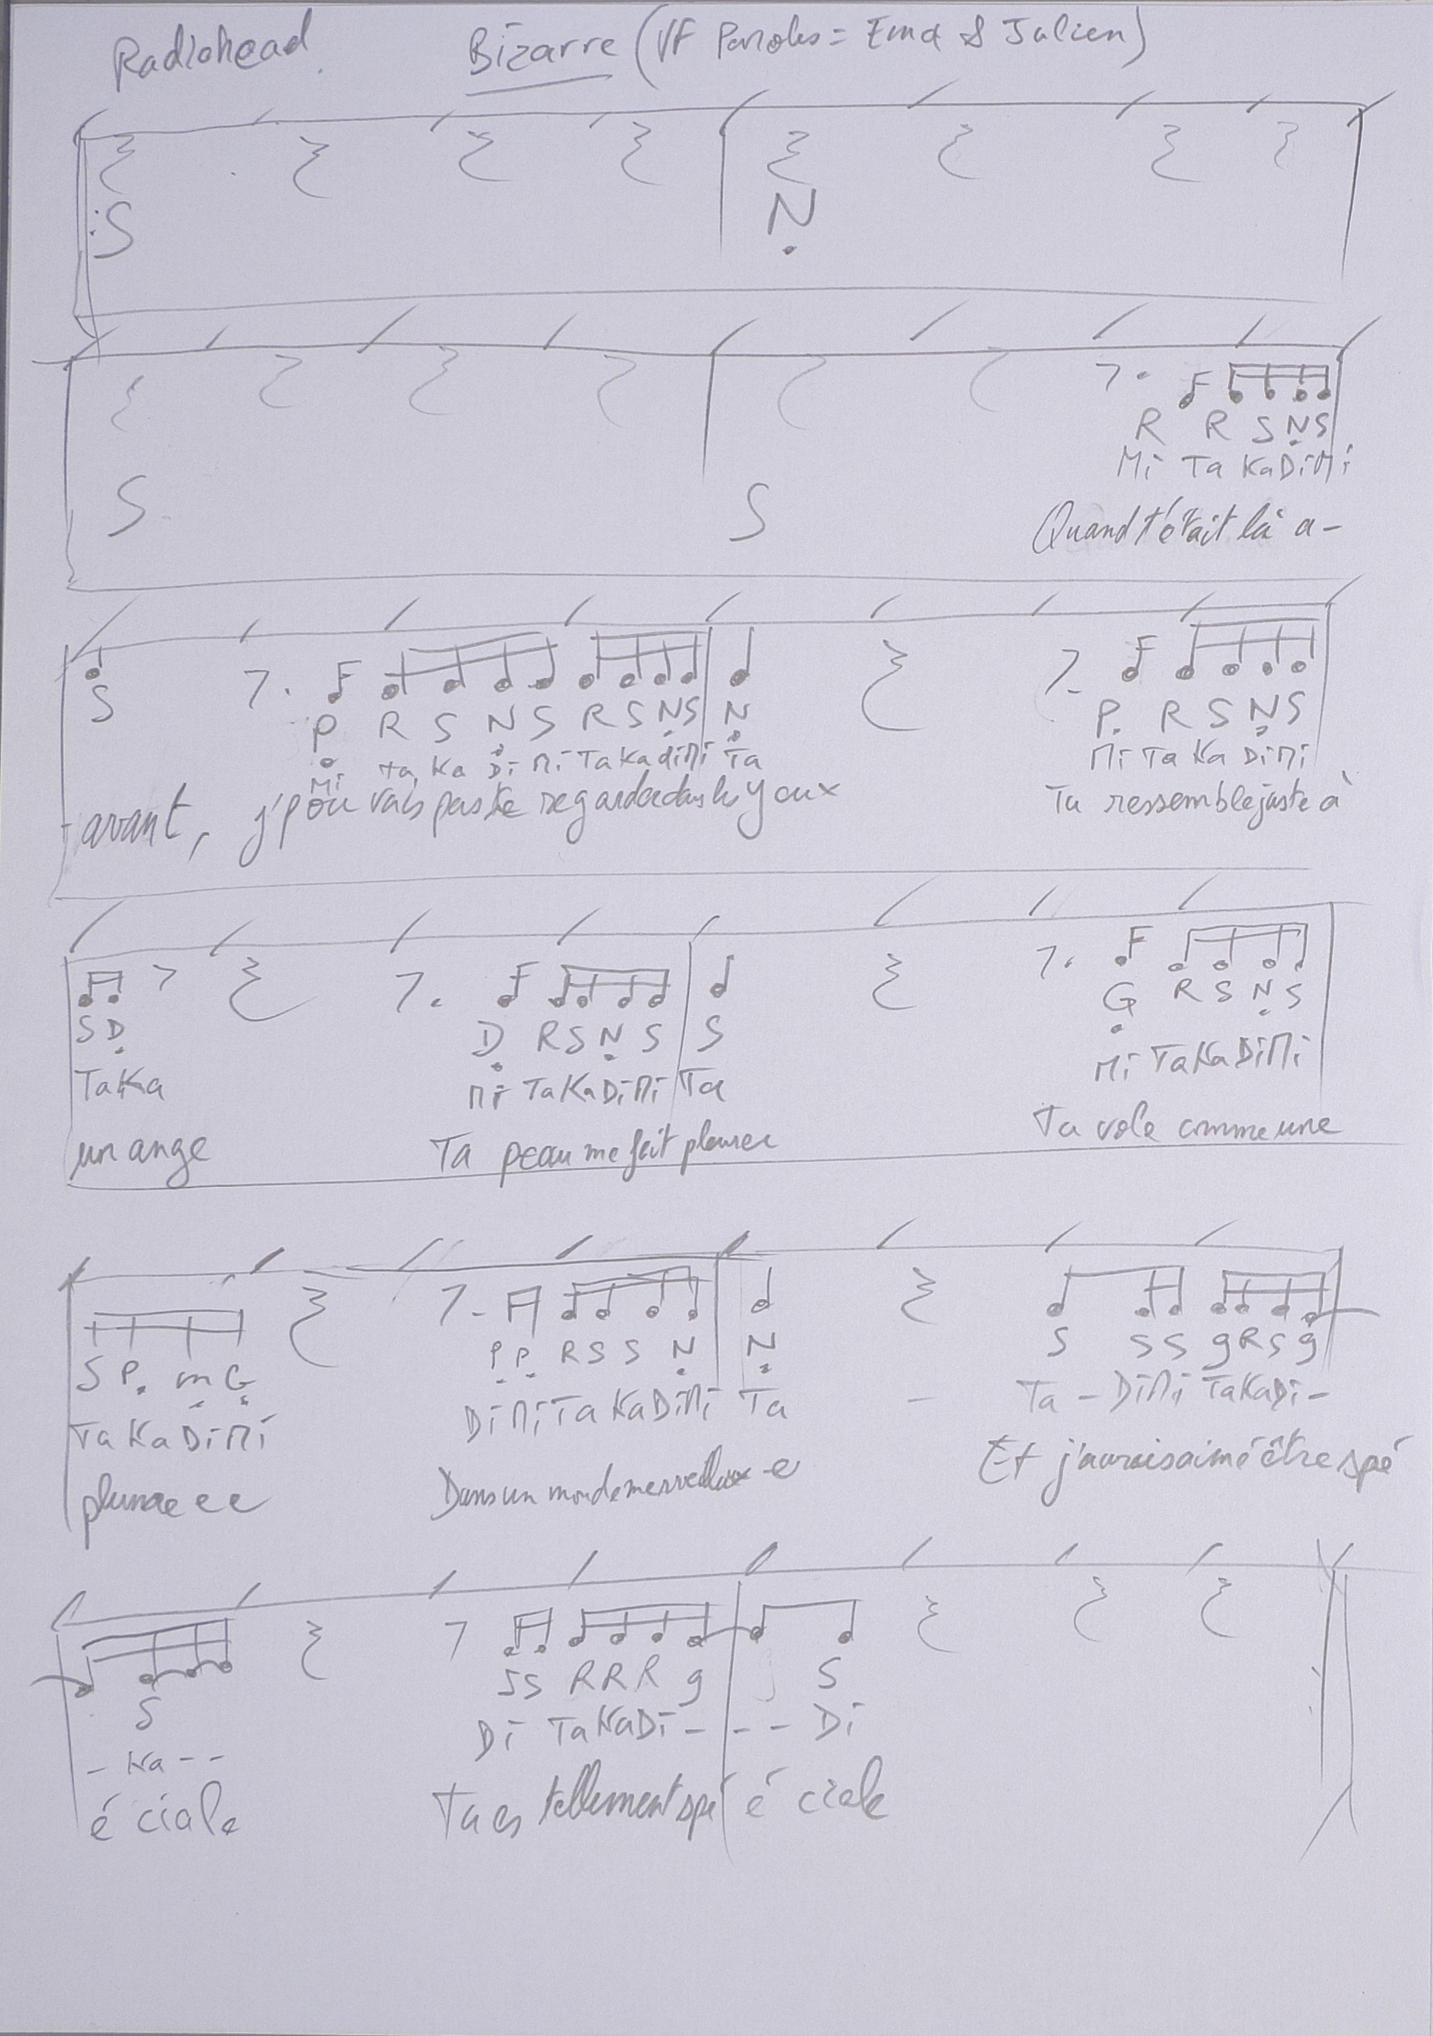 Radiohead Bizarre (VF Paroles = Ema & Julien)
S N
S S R R S N S
Mi Ta Ka Di Mi
Quand t'était là a-
S P R S N S R S N S N P R S N S
Mi Ta Ka Di Mi Ta Ka di Mi Ta Mi Ta Ka Di Mi
-avant, j'pouvais pas te regarder dans les yeux Tu ressemble juste à
S D D R S N S S G R S N S
Ta Ka Mi Ta Ka Di Mi Ta Mi Ta Ka Di Mi
un ange Ta peau me fait pleurer Tu vole comme une
S P m G P P R S S N N S S S g R S g
Ta Ka Di Mi Di Mi Ta Ka Di Mi Ta - Ta - Di Mi Ta Ka Di -
plumeee Dans un monde merveilleux-e Et j'aurais aimé être spé
S S S R R R g S
- Ka - - Di Ta Ka Di - - - Di
é ciale Tu es tellement spé é ciale